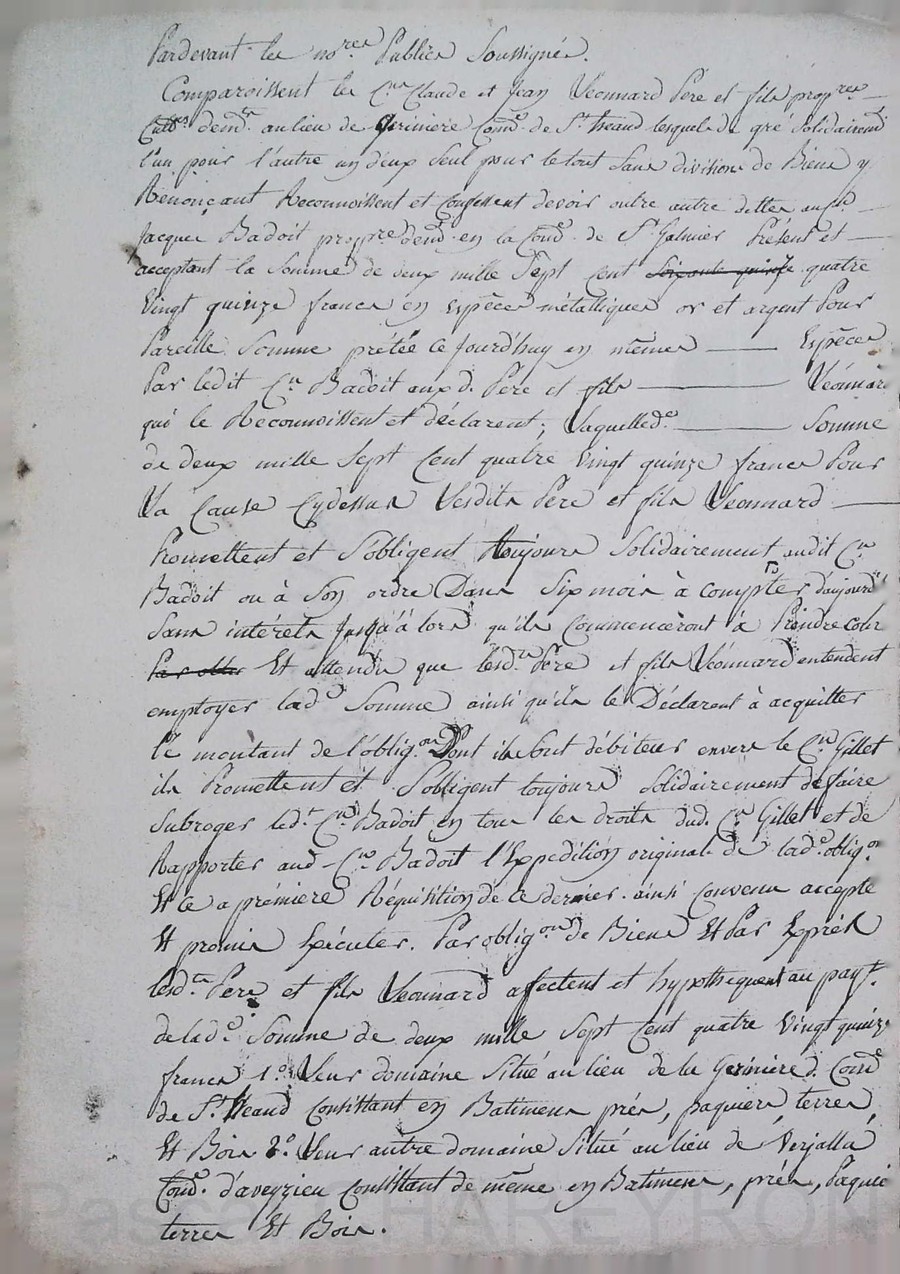 Pardevant les no.res Publics Soussignés.
Comparoissent les C.ens Claude et Jean Véonnard Père et fils prop.res
Cult.rs dem.ts au lieu de Geriniere Com.e de S.t heand lesquels de gré Solidairem.t
l'un pour l'autre un deux Seul pour le tout Sans division de Biens y
Renonçant Reconnoissent et Confessent devoir outre autre dettes au C.n
Jacques Badoit propre dem.t en la Com.e de S.t Galmier Présent et
acceptant la Somme de deux mille Sept Cent Soixante quinze quatre
Vingt quinze francs en Espèces métalliques or et argent Pour
Pareille Somme prétée ce Jourd'huy en mêmes Espèces
Par ledit C.n Badoit aux d. Père et fils Véonnard
qui le Reconnoissent et déclarent; Laquelled.e Somme
de deux mille Sept Cent quatre Vingt quinze francs Pour
La Cause Cydessus Lesdits Père et fils Véonnard
Promettent et S'obligent Toujours Solidairement audit C.n
Badoit ou à Son ordre Dans Six mois à compter d'aujourd'
Sans intérêts Jusqu'à lors qu'ils Commenceront à Prendre cour
Et attendu que lesd.ts Père et fils Véonnard entendent
employer lad.e Somme ainsi qu'ils le Déclarent à acquitter
le montant de l'oblig.on Dont ils Sont débiteurs envers le C.en Gillet
ils Promettent et S'obligent toujours Solidairement de faire
Subroger led.t C.en Badoit en tous les droits dud. C.en Gillet et de
Rapporter aud. C.en Badoit l'Expédition original de lad.e oblig.on
Et ce a prémiere Réquisition de ce dernier. ainsi Convenu accepté
Et promis Exécuter. Par oblig.on de Biens Et Par Exprès
lesd.ts Père et fils Véonnard affectent et hypothequent au pay.t
de lad.e Somme de deux mille Sept Cent quatre Vingt quinze
francs 1.o Leur domaine Situé au lieu de la Geriniere d. Com.e
de S.t heand Consistant en Batimens prés, paquiers, terres,
Et Bois 2.o Leur autre domaine Situé au lieu de Verjassu
Com.e d'aveyzieu Consistant de même en Batimens, prés, Paquie
terres Et Bois.
Pascal CHAREYRON